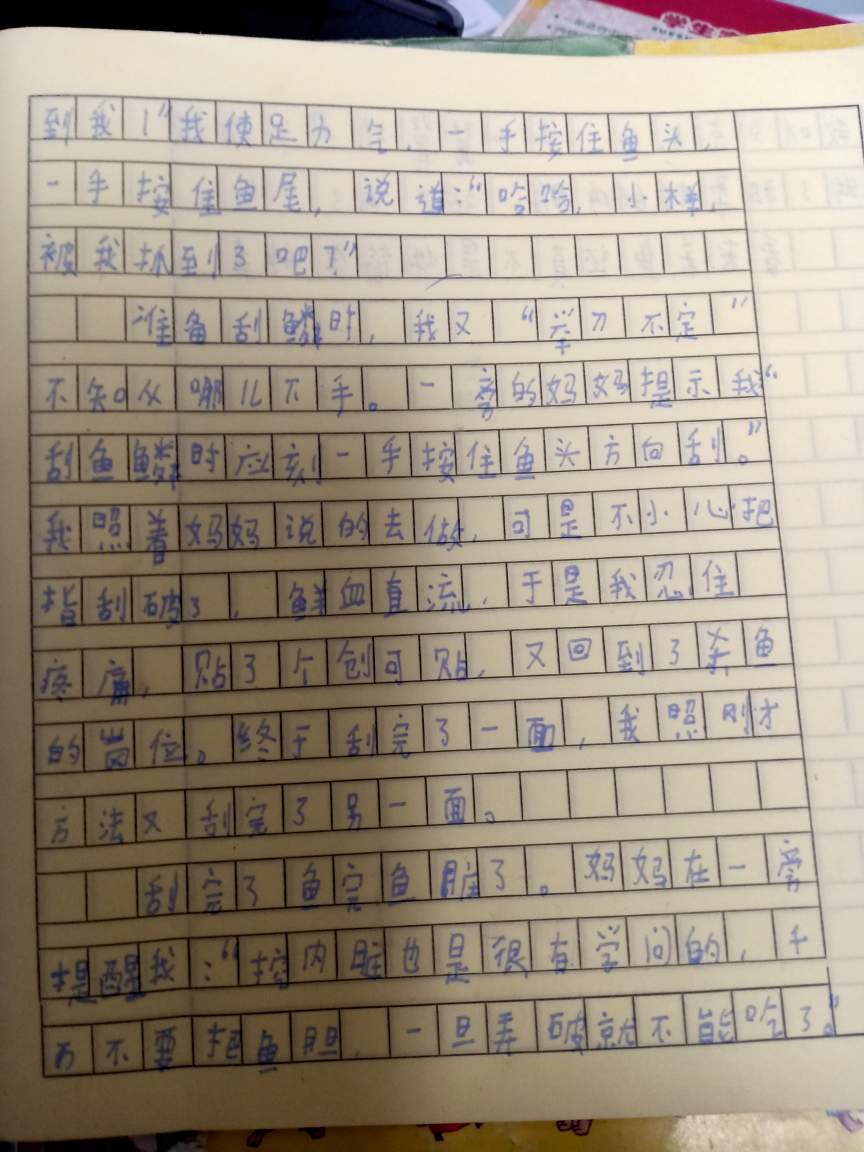 学生
到我！”我使足力气，一手按住鱼头，
一手按住鱼尾，说道：“哈哈，小样，
被我抓到了吧？”
准备刮鳞时，我又“举刀不定”
不知从哪儿下手。一旁的妈妈提示我“
刮鱼鳞时应刻一手按住鱼头方向刮。”
我照着妈妈说的去做，可是不小心把
指刮破了，鲜血直流，于是我忍住
疼痛，贴了个创可贴，又回到了杀鱼
的岗位。终于刮完了一面，我照刚才
方法又刮完了另一面。
刮完了鱼完鱼脏了。妈妈在一旁
提醒我：“挖内脏也是很有学问的，千
万不要把鱼胆，一旦弄破就不能吃了。”